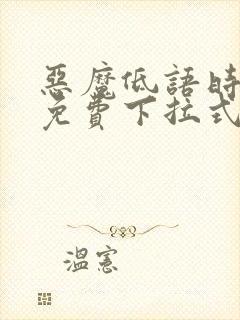 惡魔低語時
免費下拉式
溫憲